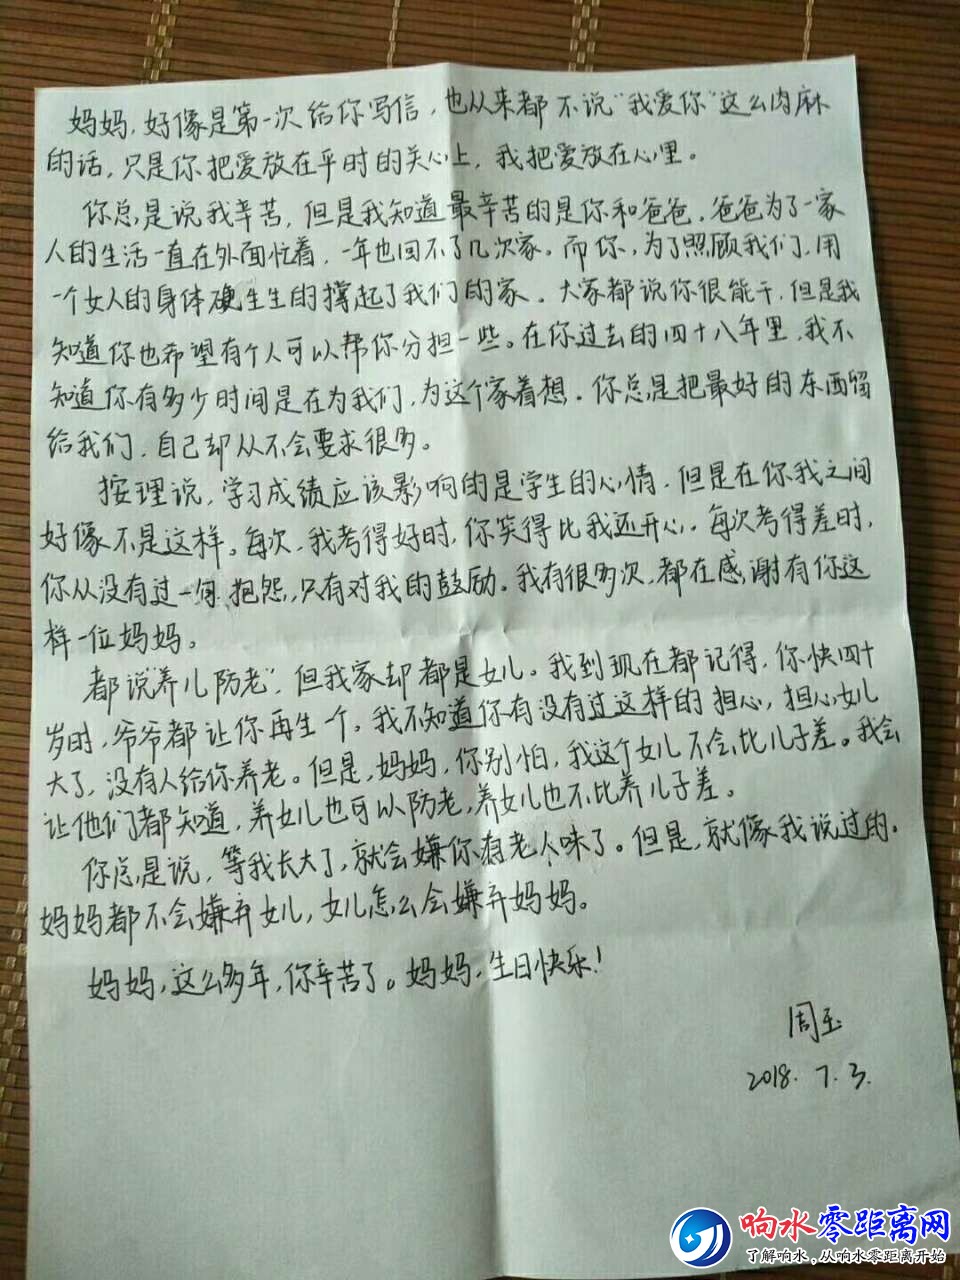 妈妈，好像是第一次给你写信，也从来都不说“我爱你”这么肉麻
的话，只是你把爱放在平时的关心上，我把爱放在心里。
你总是说我辛苦，但是我知道最辛苦的是你和爸爸。爸爸为了一家
人的生活一直在外面忙着，一年也回不了几次家。而你，为了照顾我们，用
一个女人的身体硬生生的撑起了我们的家。大家都说你很能干，但是我
知道你也希望有个人可以帮你分担一些。在你过去的四十八年里，我不
知道你有多少时间是在为我们，为这个家着想。你总是把最好的东西留
给我们，自己却从不会要求很多。
按理说，学习成绩应该影响的是学生的心情，但是在你我之间
好像不是这样。每次，我考得好时，你笑得比我还开心。每次考得差时，
你从没有过一句抱怨，只有对我的鼓励。我有很多次，都在感谢有你这
样一位妈妈。
都说“养儿防老”，但我家却都是女儿。我到现在都记得，你快四十
岁时，爷爷都让你再生一个。我不知道你有没有过这样的担心，担心女儿
大了，没有人给你养老。但是，妈妈，你别怕，我这个女儿不会比儿子差。我会
让他们都知道，养女儿也可以防老，养女儿也不比养儿子差。
你总是说，等我长大了，就会嫌你有老人味了。但是，就像我说过的，
妈妈都不会嫌弃女儿，女儿怎么会嫌弃妈妈。
妈妈，这么多年，你辛苦了。妈妈，生日快乐！
周玉
2018.7.3.
响水零距离网
了解响水，从响水零距离开始